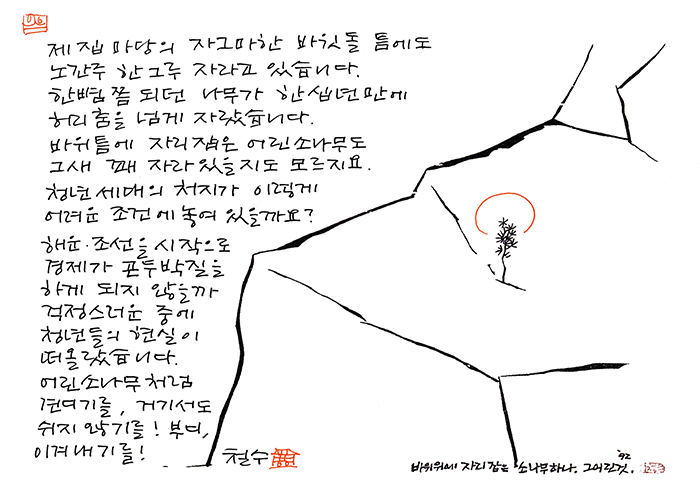 제 집 마당의 자그마한 바윗돌 틈에도
노간주 한그루 자라고 있습니다.
한뼘쯤 되던 나무가 한십년만에
허리춤을 넘게 자랐습니다.
바위틈에 자리잡은 어린소나무도
그새 꽤 자라있을지도 모르지요.
청년세대의 처지가 이렇게
어려운 조건에 놓여 있을까요?
해운·조선을 시작으로
경제가 곤두박질을
하게 되지 않을까
걱정스러운 중에
청년들의 현실이
떠올랐습니다.
어린소나무처럼
견디기를, 거기서도
쉬지 않기를! 부디,
이겨내기를!
철수
바위위에 자리잡은 소나무하나. 그어린것. '92